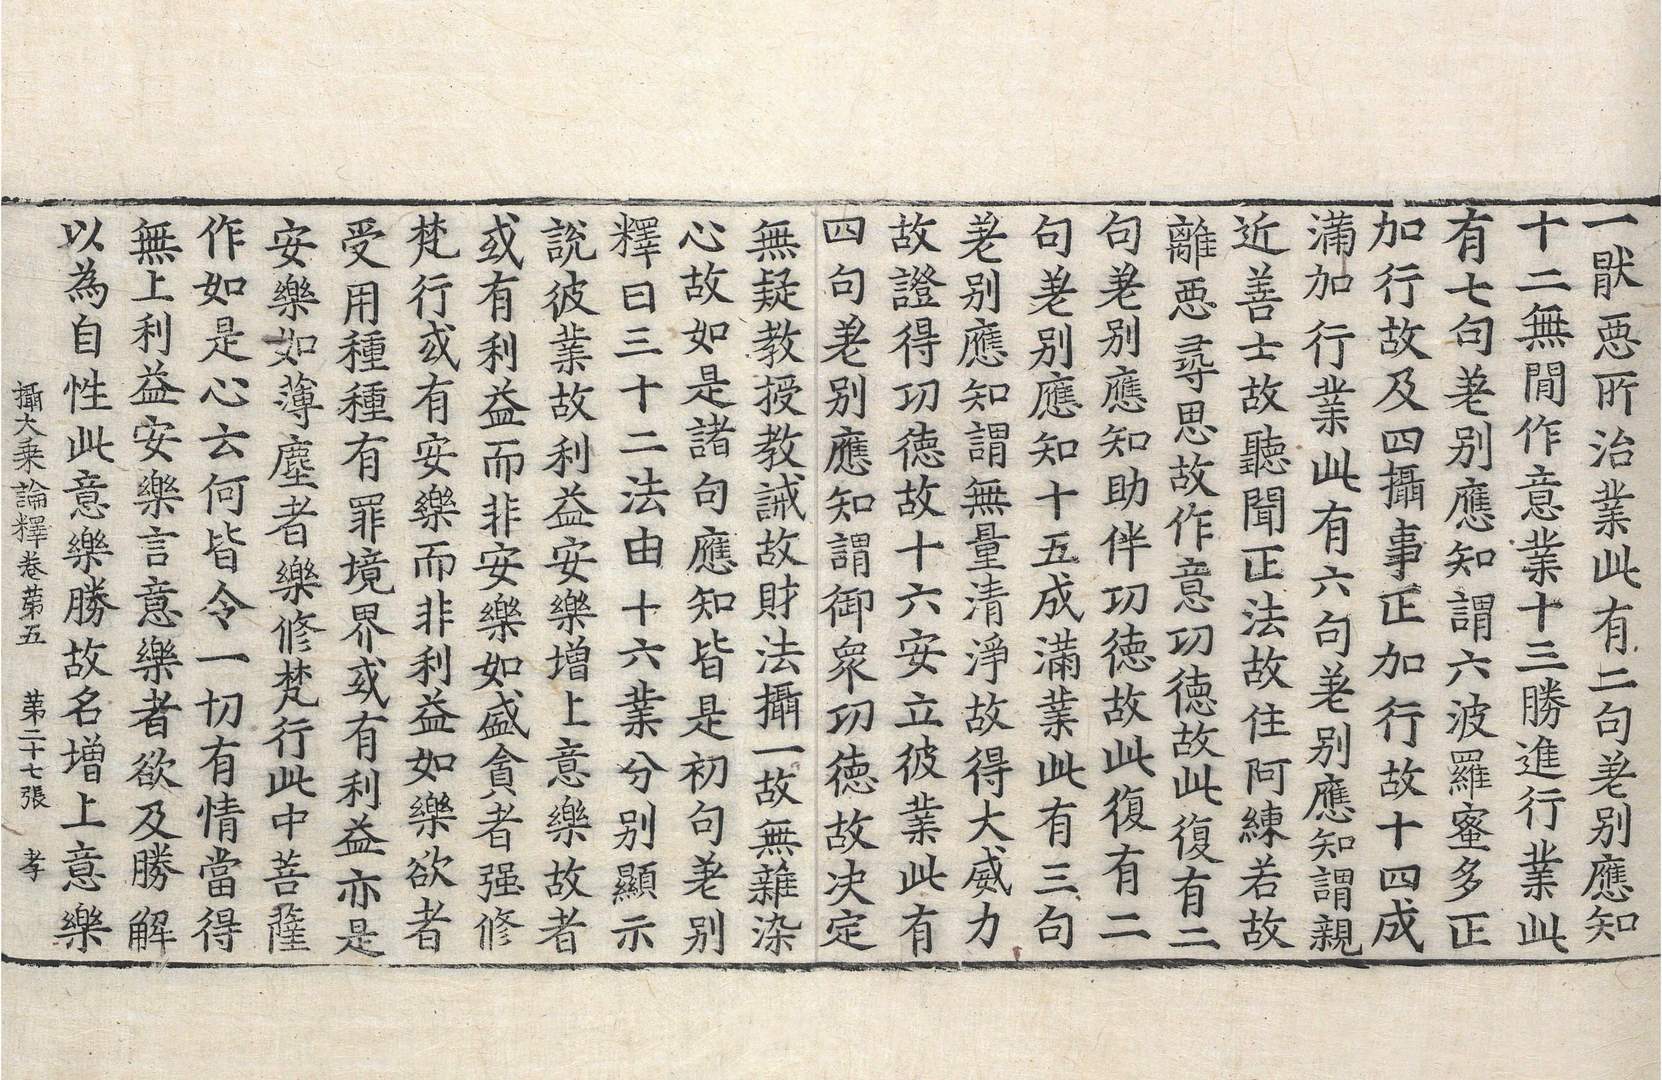 一猒惡所治業此有二句差别應知
十二無閒作意業十三勝進行業此
有七句差别應知謂六波羅蜜多正
加行故及四攝事正加行故十四成
滿加行業此有六句差别應知謂親
近善士故聽聞正法故住阿練若故
離惡尋思故作意功德故此復有二
句差别應知助伴功德故此復有二
句差别應知十五成滿業此有三句
差别應知謂無量清淨故得大威力
故證得功德故十六安立彼業此有
四句差别應知謂御衆功德故決定
無疑教授教誡故財法攝一故無雜染
心故如是諸句應知皆是初句差别
釋曰三十二法由十六業分别顯示
說彼業故利益安樂增上意樂故者
或有利益而非安樂如盛貪者强修
梵行或有安樂而非利益如樂欲者
受用種種有罪境界或有利益亦是
安樂如薄塵者樂修梵行此中菩薩
作如是心云何皆令一切有情當得
無上利益安樂言意樂者欲及勝解
以為自性此意樂勝故名增上意樂
攝大乘論釋卷第五 第二十七張 孝